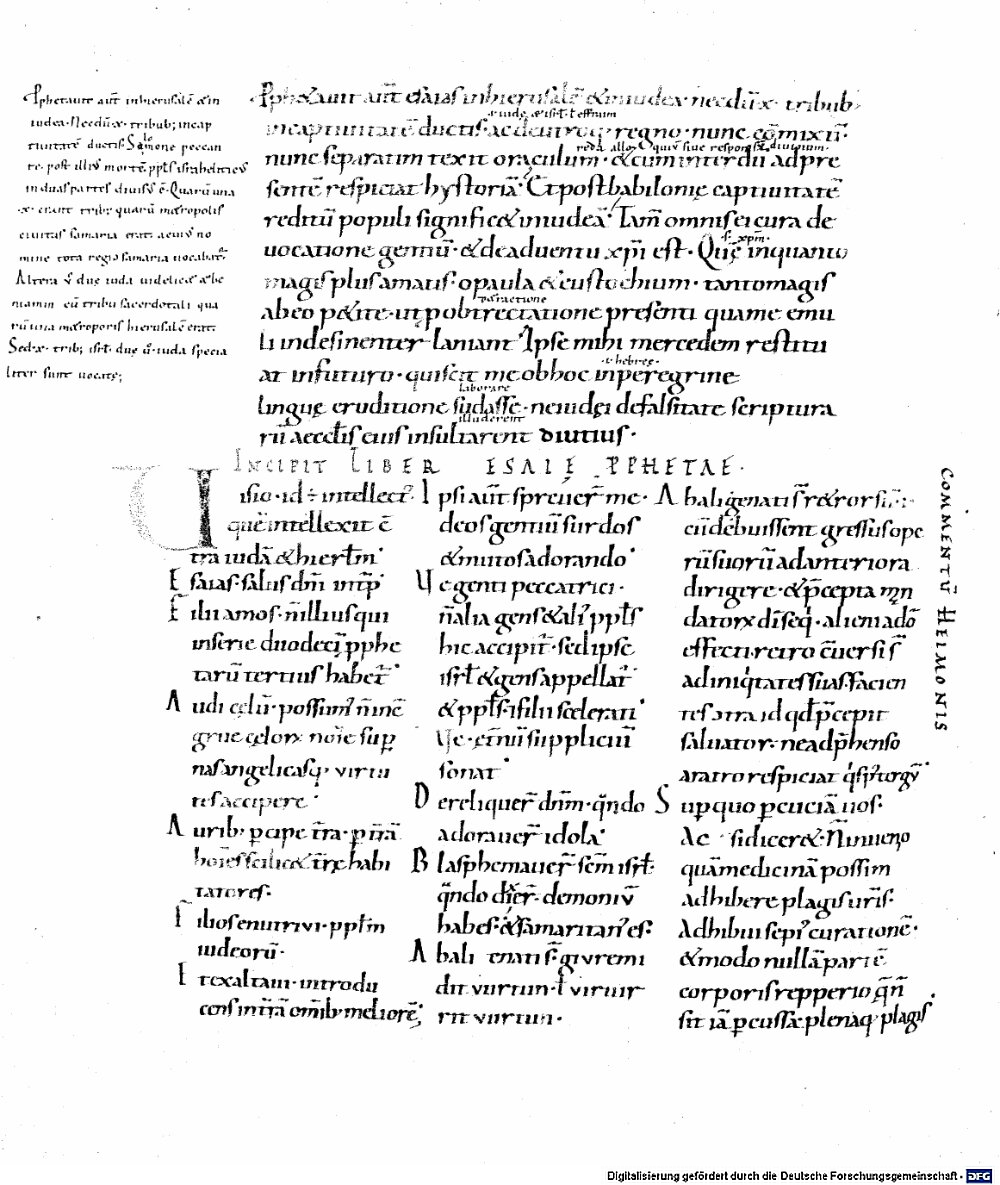 Pphetauit aut̄ inhierusalē &in
iudea. Necdū x· tribub; incap
tiuitatē ductis· Salomone peccan
te· post illiꝰ mortē· ppl̄s israheliticꝰ
induas partes diuisꝰ ē· Quarū una
·x· erant tribꝰ quarū metropolis
ciuitas samaria erat· a cuiꝰ no
mine tota regio samaria uocabat᷑·
Altera ū due iuda uidelicet & be
niamin cū tribu sacerdotali qua
rū una metroporis hierusalē erat·
Sed x· trib; isrl̄· due ū· iuda specia
liter sunt uocate;
Pph&auit aut̄ esaias inhierusalē &iniudea necdū x· tribub;
·s· iude· & isrl̄· l̄ effraim
incaptiuitatē ductis· ac deutroq; regno· nunc cōmixtī·
nunc separatim texit oraculum· &cum interdū adpre
sentē respiciat hystoriā· Et post babilonię captiuitatē
reditū populi signific& iniudeā· Tam̄ omnis ei cura de
uocatione gentiū· & deaduentu xp̄i est·
s· xp̄m·
Quę inquanto
magis plus amatis· o paula & eustochium· tanto magis
detractione
ab eo p&ite· ut p obtrectatione presenti qua me emu
li indesinenter laniant Ipse mihi mercedem restitu
·i· hebreę·
at infuturo· qui scit me ob hoc inperegrine
laborare
linguę eruditione sudasse· ne iudęi defalsitate scriptura
illuderent
rū aeccl̄is eius insultarent diutius·
INCIPIT LIBER ESAIE PPHETAE·
Uisio· id ÷ intellect᷑·
quē intellexit ē
tra iudā & hierl̄m·
Esaias· salus dn̄i int̄p̄
Filii amos· n̄ illius qui
inserie duodecī pphe
tarū tertius habet᷑·
Audi cęlū· possum᷑ n̄ ine
grue cęlorx noīe sup
nas angelicasq; uirtu
tes accipere·
Aurib; p cipe t̄ra· p t̄rā
hoīes scilic& t̄rx habi
tatores·
Filios enutriui· ppl̄m
iudeorū·
Et exaltaui· introdu
cens in t̄rā omīb; meliorē;
Ipsi aut̄ spreuer̄ me·
deos gentiū surdos
& mutos adorando·
Ue genti peccatrici·
n̄ alia gens & ali᷑ ppl̄s
hic accipit᷑· sed ipse
isrl̄ & gens appellat᷑
& ppl̄s· i filii scelerati·
Ue· et̄nū suppliciū
sonat·
Dereliquer̄ dn̄m· qn̄do
adorauer̄ idola·
Blasphemauer̄ sc̄m isrl̄·
qn̄do dix̄er̄· demoniū
habes· & samaritan᷑ es·
Abalienati s̄·
dit uirtun· l̄
rit uirtun·
Abalienati s̄ retrorsū·
cū debuissent gressus ope
rū suorū ad anteriora
dirigere· & p̄cepta
datorx
effecti· retro cuersi s̄
ad iniq̇tates suas· facien
tes ɔtra id qd̄ p̄cepit
saluator· ne adp̄henso
aratro respiciat
Sup quo p cuciā uos·
Ac si dicer&· N̄ inuenio
quā medicinā possim
adhibere plagis uris·
Adhibui sepi᷑ curationē·
& modo nullā partē
corporis repperio qn̄
sit iā p cussa· plenaq; plagis·
COMMENTŪ HEIMONIS
Digitalisierung gefördert durch die Deutsche Forschungsgemeinschaft - DFG